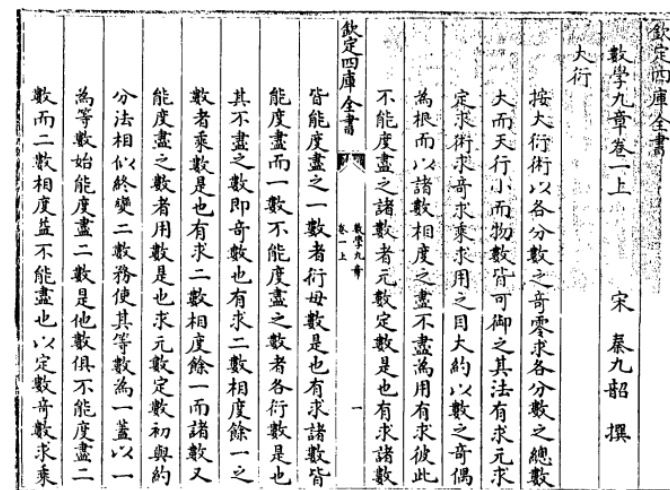 欽定四庫全書
數學九章卷一上
宋 秦九韶 撰
大衍
按大衍術以各分數之奇零求各分數之總數
大而天行小而物數皆可御之其法有求元求
定求術求奇求乘求用之目大約以數之奇偶
為根而以諸數相度之盡不盡為用有求彼此
不能度盡之諸數者元數定數是也有求諸數
欽定四庫全書
數學九章
卷一上
一
皆能度盡之一數者衍母數是也有求諸數皆
能度盡而一數不能度盡之數者各衍數是也
其不盡之數即奇數也有求二數相度餘一之
數者乘數是也有求二數相度餘一而諸數又
能度盡之數者用數是也求元數定數初與約
分法相似終變二數務使其等數為一蓋以一
為等數始能度盡二數是他數俱不能度盡二
數而二數相度蓋不能盡也以定數奇數求乘